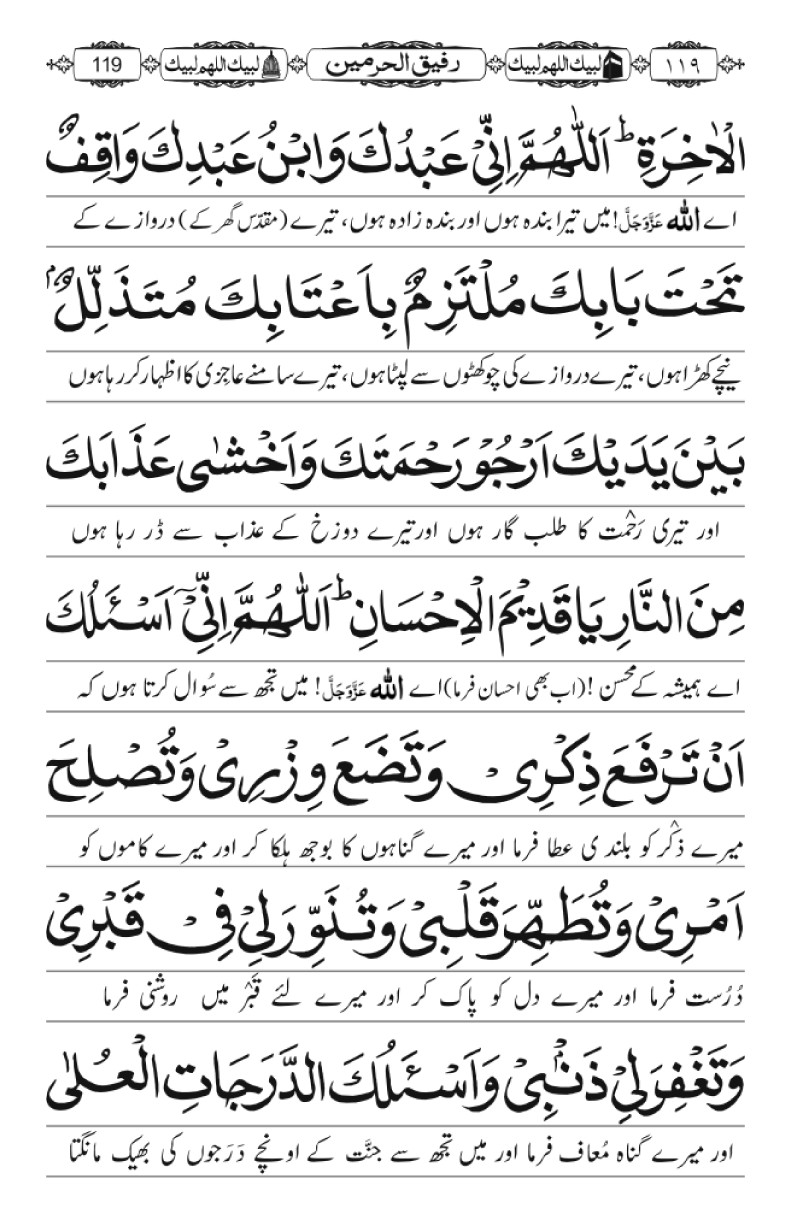 ١١٩ لبيك اللهم لبيك رفيق الحرمين لبيك اللهم لبيك 119
الْاٰخِرَةِ ؕ اَللّٰهُمَّ اِنِّیْ عَبْدُكَ وَابْنُ عَبْدِكَ وَاقِفٌ
اے اللہ عَزَّوَجَلَّ! میں تیرا بندہ ہوں اور بندہ زادہ ہوں، تیرے (مقدّس گھر کے) دروازے کے
تَحْتَ بَابِكَ مُلْتَزِمٌ بِاَعْتَابِكَ مُتَذَلِّلٌۢ
نیچے کھڑا ہوں، تیرے دروازے کی چوکھٹوں سے لپٹا ہوں، تیرے سامنے عاجِزی کا اظہار کر رہا ہوں
بَیْنَ یَدَیْكَ اَرْجُوْ رَحْمَتَكَ وَاَخْشٰی عَذَابَكَ
اور تیری رَحْمت کا طلب گار ہوں اور تیرے دوزخ کے عذاب سے ڈر رہا ہوں
مِنَ النَّارِ یَا قَدِیْمَ الْاِحْسَانِ ؕ اَللّٰهُمَّ اِنِّیْۤ اَسْئَلُكَ
اے ہمیشہ کے محسن! (اب بھی احسان فرما) اے اللہ عَزَّوَجَلَّ! میں تجھ سے سُوال کرتا ہوں کہ
اَنْ تَرْفَعَ ذِكْرِیْ وَتَضَعَ وِزْرِیْ وَتُصْلِحَ
میرے ذکْر کو بلندی عطا فرما اور میرے گناہوں کا بوجھ ہلکا کر اور میرے کاموں کو
اَمْرِیْ وَتُطَهِّرَ قَلْبِیْ وَتُنَوِّرَ لِیْ فِیْ قَبْرِیْ
دُرُست فرما اور میرے دل کو پاک کر اور میرے لئے قَبْر میں روشنی فرما
وَتَغْفِرَ لِیْ ذَنْۢبِیْ وَاَسْئَلُكَ الدَّرَجَاتِ الْعُلٰی
اور میرے گناہ مُعاف فرما اور میں تجھ سے جنّت کے اونچے دَرَجوں کی بھیک مانگتا